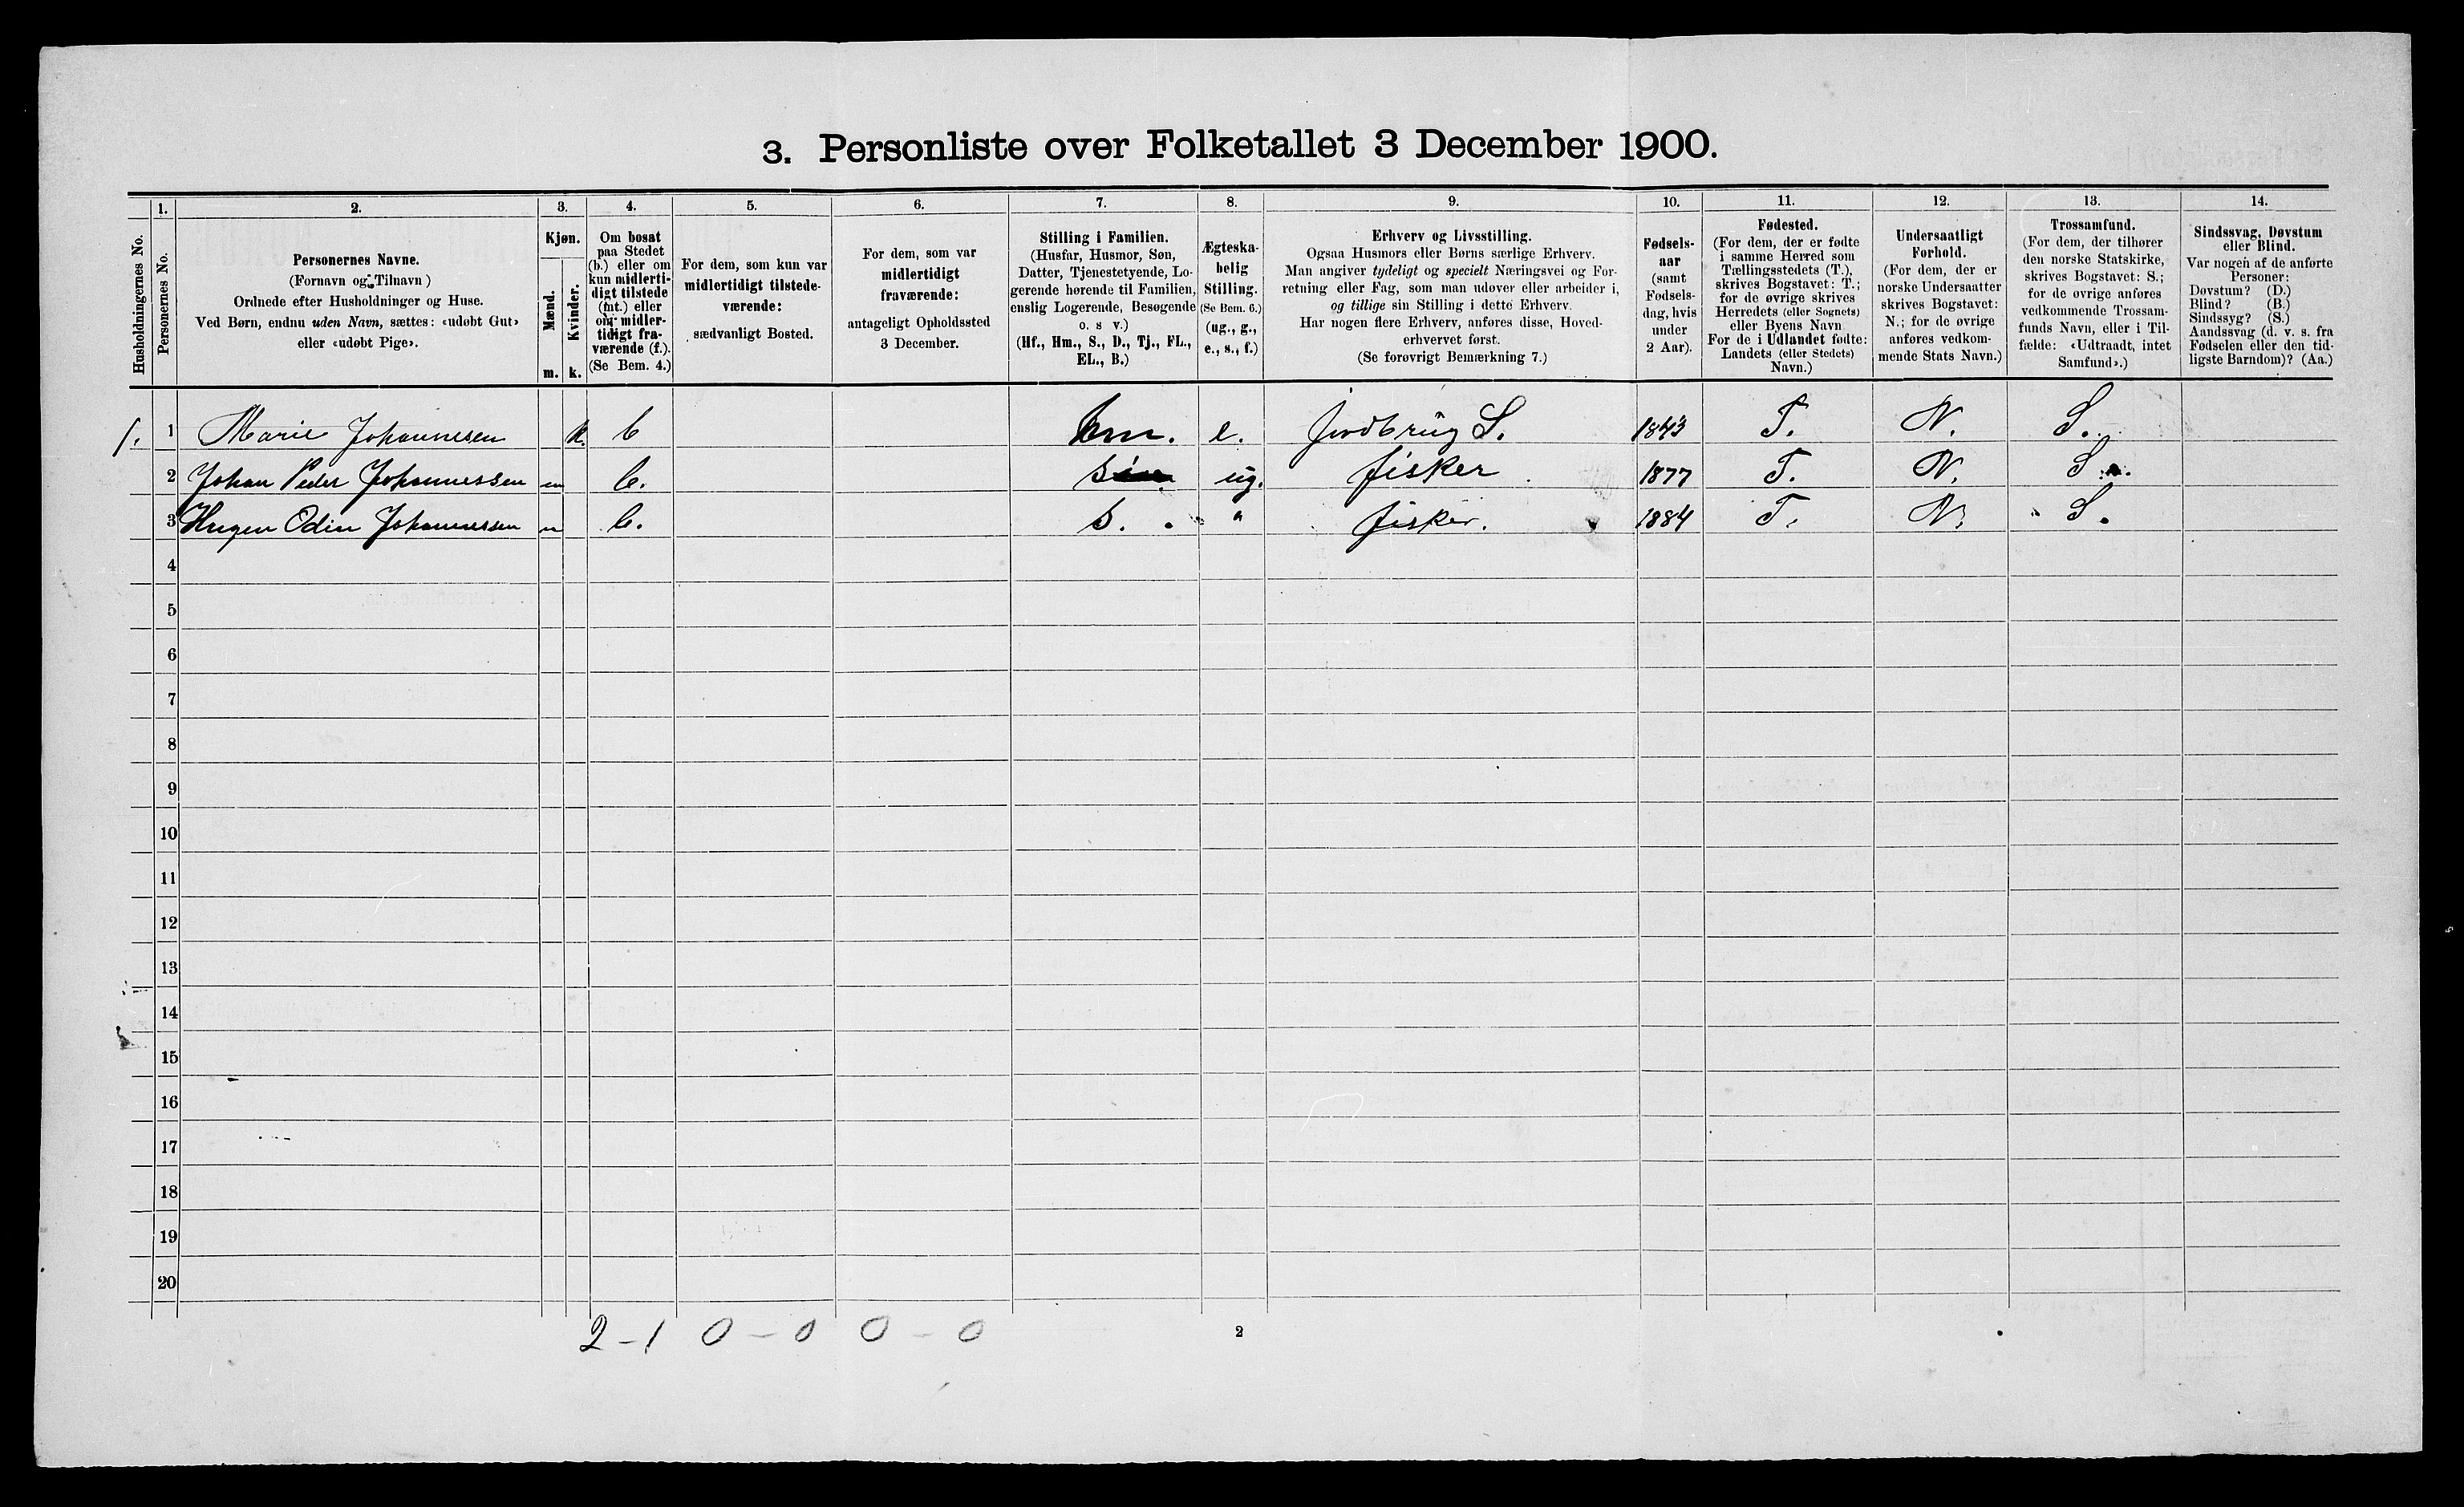 3. Personliste over Folketallet 3 December 1900.
1. 2. 3. 4. 5. 6. 7. 8. 9. 10. 11. 12. 13. 14.
Husholdningernes No.
Personernes No.
Personernes Navne.
(Fornavn og Tilnavn)
Ordnede efter Husholdninger og Huse.
Ved Børn, endnu uden Navn, sættes: «udøbt Gut»
eller «udøbt Pige».
Kjøn.
Mænd.
Kvinder.
m. k.
Om bosat
paa Stedet
(b.) eller om
kun midlerti-
digt tilstede
(mt.) eller
om midler-
tidigt fra-
værende (f.).
(Se Bem. 4.)
For dem, som kun var
midlertidigt tilstede-
værende:
sædvanligt Bosted.
For dem, som var
midlertidigt
fraværende:
antageligt Opholdssted
3 December.
Stilling i Familien.
(Husfar, Husmor, Søn,
Datter, Tjenestetyende, Lo-
gerende hørende til Familien,
enslig Logerende, Besøgende
o. s v.)
(Hf., Hm., S., D., Tj., FL.,
EL., B.)
Ægteska-
belig
Stilling.
(Se Bem. 6.)
(ug., g.,
e., s., f.)
Erhverv og Livsstilling.
Ogsaa Husmors eller Børns særlige Erhverv.
Man angiver tydeligt og specielt Næringsvei og For-
retning eller Fag, som man udøver eller arbeider i,
og tillige sin Stilling i dette Erhverv.
Har nogen flere Erhverv, anføres disse, Hoved-
erhvervet først.
(Se forøvrigt Bemærkning 7.)
Fødsels-
aar
(samt
Fødsels-
dag, hvis
under
2 Aar).
Fødested.
(For dem, der er fødte
i samme Herred som
Tællingsstedets (T.),
skrives Bogstavet: T.;
for de øvrige skrives
Herredets (eller Sognets)
eller Byens Navn
For de i Udlandet fødte:
Landets (eller Stedets)
Navn.)
Undersaatligt
Forhold.
(For dem, der er
norske Undersaatter
skrives Bogstavet:
N.; for de øvrige
anføres vedkom-
mende Stats Navn.)
Trossamfund.
(For dem, der tilhører
den norske Statskirke,
skrives Bogstavet: S.;
for de øvrige anføres
vedkommende Trossam-
funds Navn, eller i Til-
fælde: «Udtraadt, intet
Samfund».)
Sindssvag, Døvstum
eller Blind.
Var nogen af de anførte
Personer:
Døvstum? (D.)
Blind? (B.)
Sindssyg? (S.)
Aandssvag (d. v. s. fra
Fødselen eller den tid-
ligste Barndom)? (Aa.)
1. 1 Marie Johannesen k. b hm. e. jordbrug S. 1843 T. N. S.
2 Johan Peder Johannessen m b. s ug. fisker 1877 T. N. S.
3 Hagen Odin Johannessen m b. s. " fisker. 1884 T. N. " S.
4
5
6
7
8
9
10
11
12
13
14
15
16
17
18
19
20
2-1 0-0 0-0
2